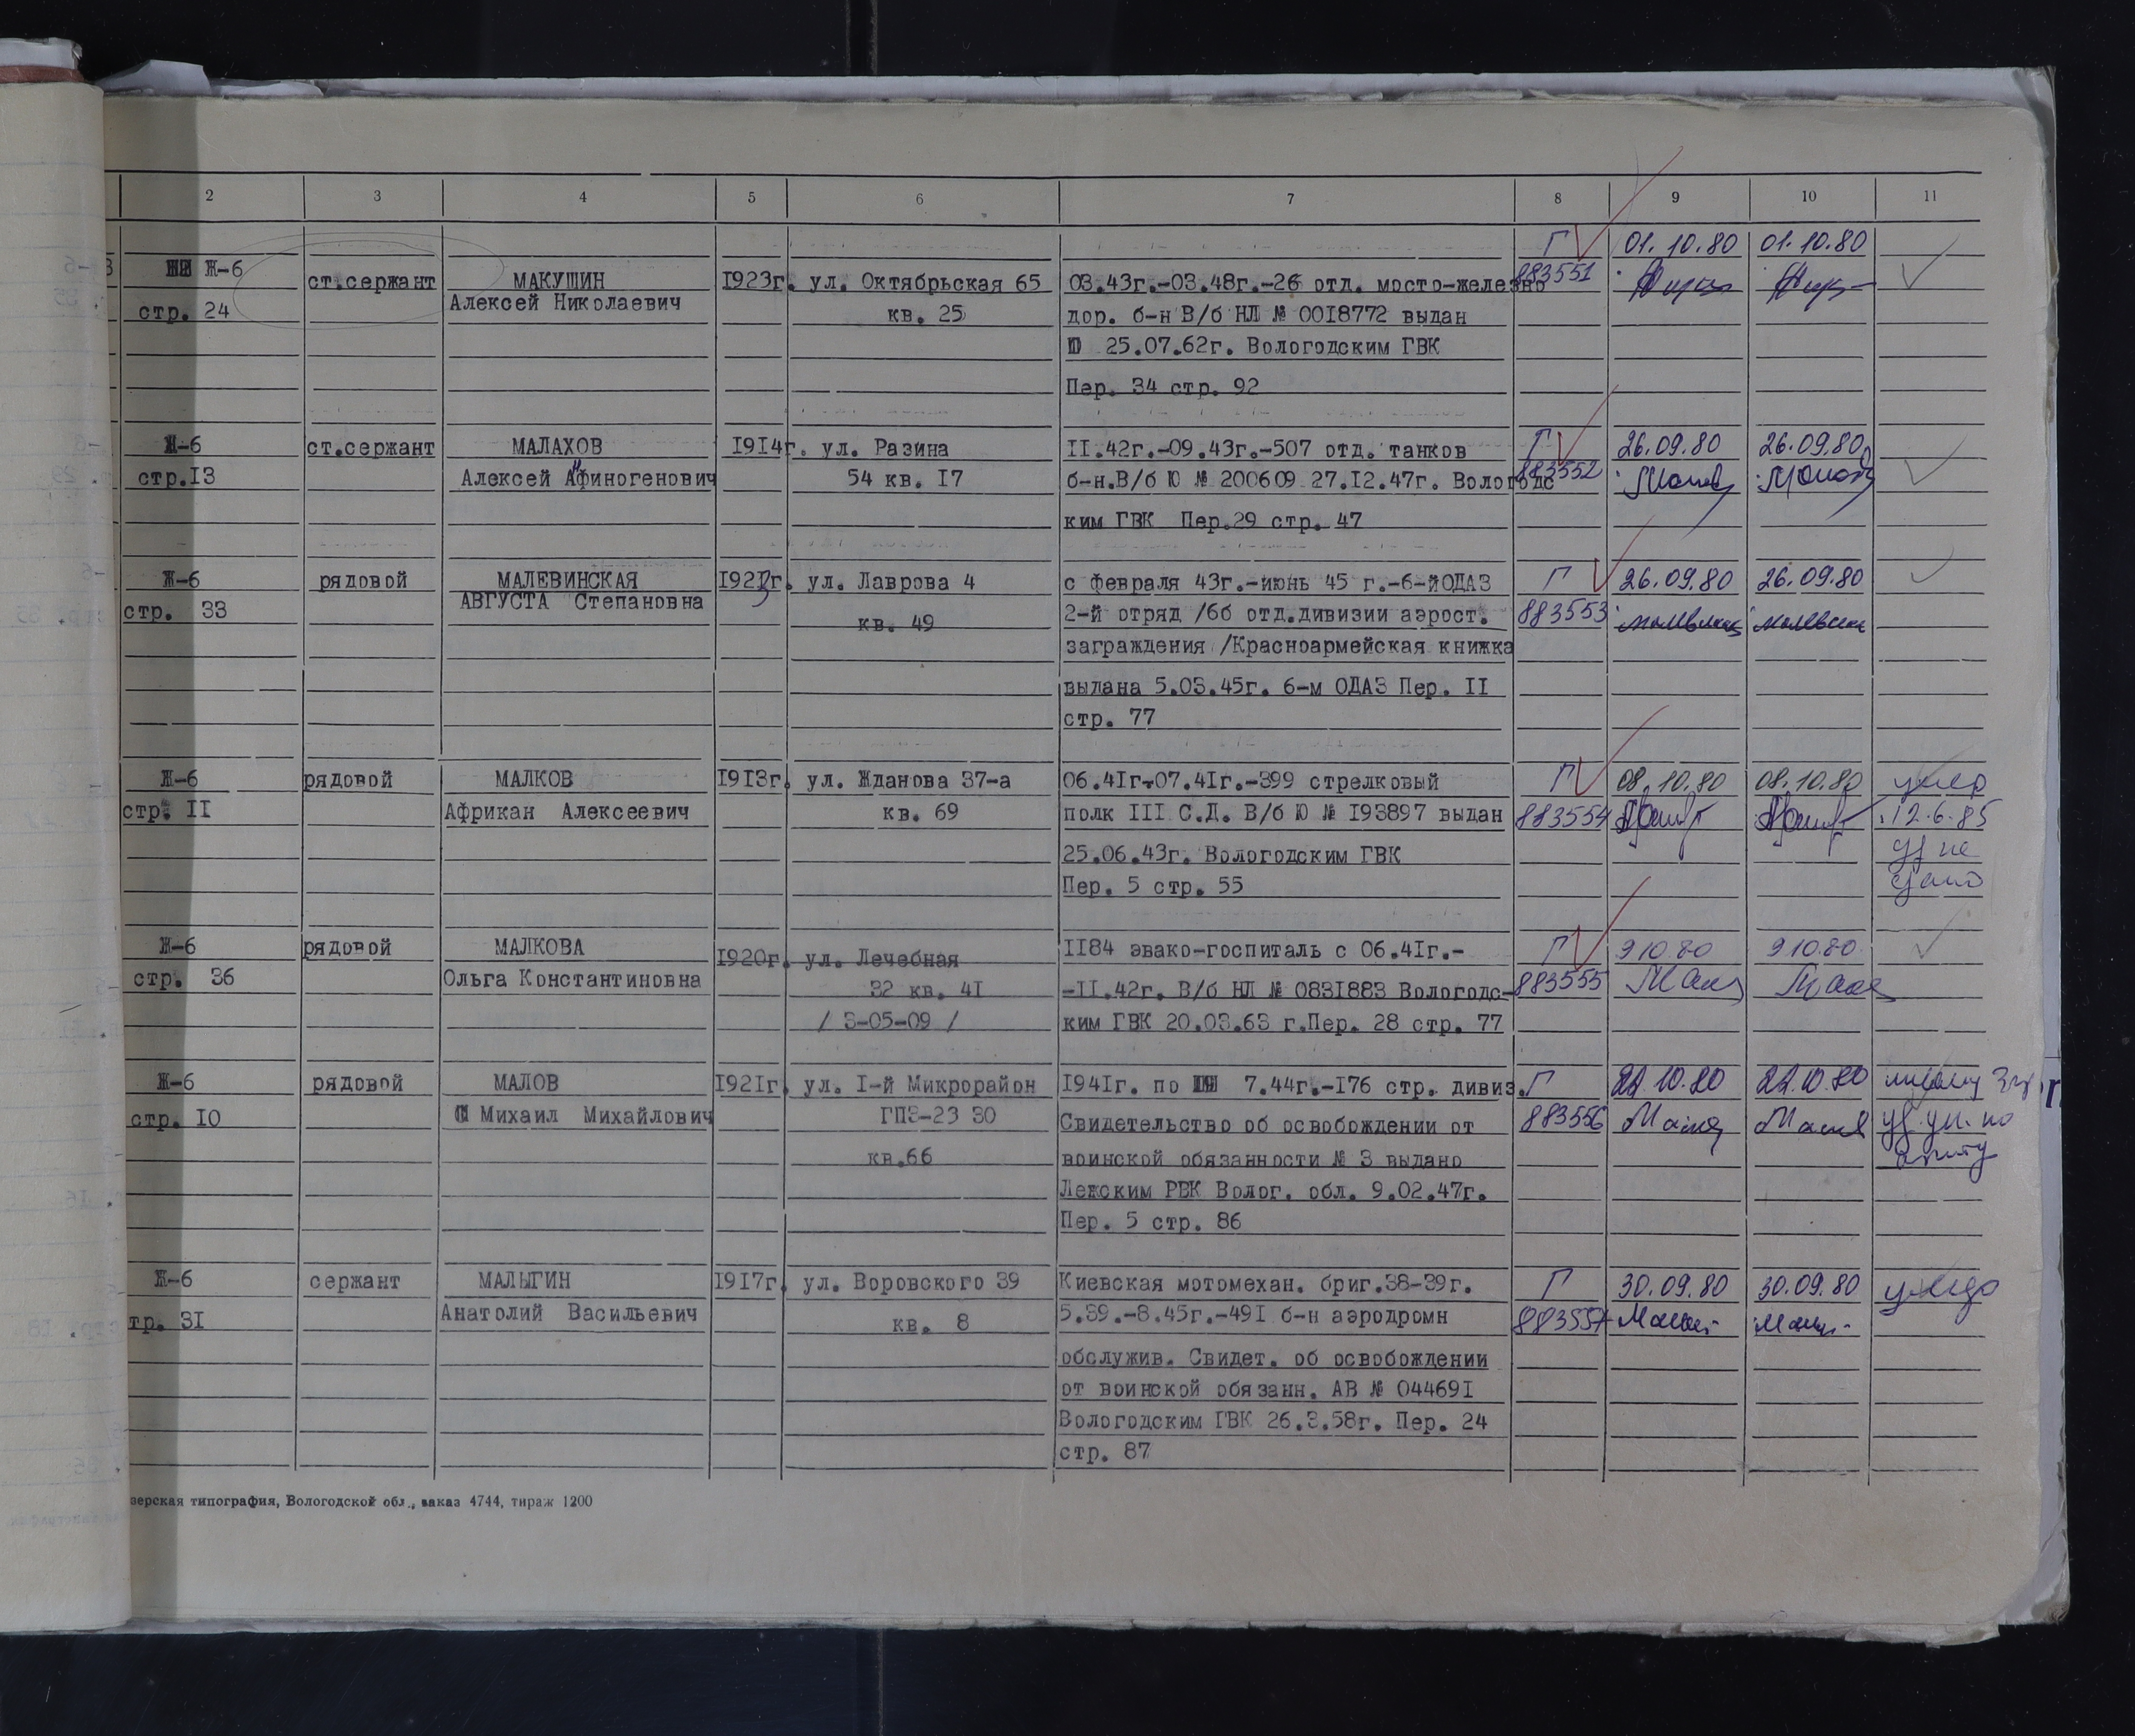 2 3 4 5 6 7 8 9 10 11
Г 01.10.80 01.10.80
Ж-6 ст.сержант МАКУШИН 1923г. ул. Октябрьская 65 03.43г.-03.48г.-26 отд. мосто-железно 883551
стр. 24 Алексей Николаевич кв. 25 дор. б-н В/б НЛ № 0018772 выдан
25.07.62г. Вологодским ГВК
Пер. 34 стр. 92
Ж-6 ст.сержант МАЛАХОВ 1914г. ул. Разина II.42г.-09.43г.-507 отд. танков Г 26.09.80 26.09.80
стр.I3 Алексей Афиногенович 54 кв. I7 б-н.В/б Ю № 200609 27.I2.47г. Вологодс 883552
ким ГВК Пер.29 стр. 47
Ж-6 рядовой МАЛЕВИНСКАЯ 1923г. ул. Лаврова 4 с февраля 43г.-июнь 45 г.-6-йОДАЗ Г 26.09.80 26.09.80
стр. 33 АВГУСТА Степановна кв. 49 2-й отряд /6б отд.дивизии аэрост. 883553
заграждения /Красноармейская книжка
выдана 5.03.45г. 6-м ОДАЗ Пер. II
стр. 77
Ж-6 рядовой МАЛКОВ I9I3г. ул. Жданова 37-а 06.4Iг-07.4Iг.-399 стрелковый Г 08.10.80 08.10.80 умер
стр. II Африкан Алексеевич кв. 69 полк III С.Д. В/б Ю № I93897 выдан 883554 12.6.85
25.06.43г. Вологодским ГВК уд не
Пер. 5 стр. 55 сдано
Ж-6 рядовой МАЛКОВА I920г. ул. Лечебная II84 эвако-госпиталь с 06.4Iг.- Г 9 10.80 9 10.80
стр. 36 Ольга Константиновна 32 кв. 4I -II.42г. В/б НЛ № 083I883 Вологодс- 883555
/ 3-05-09 / ким ГВК 20.03.63 г.Пер. 28 стр. 77
Ж-6 рядовой МАЛОВ I92Iг. ул. I-й Микрорайон I94Iг. по 7.44г.-I76 стр. дивиз. Г 22.10.80 22.10.80
стр. I0 Михаил Михайлович ГПЗ-23 30 Свидетельство об освобождении от 883556
кв.66 воинской обязанности № 3 выдано
Лежским РВК Волог. обл. 9.02.47г.
Пер. 5 стр. 86
Ж-6 сержант МАЛЫГИН I9I7г. ул. Воровского 39 Киевская мотомехан. бриг.38-39г. Г 30.09.80 30.09.80
тр. 3I Анатолий Васильевич кв. 8 5.39.-8.45г.-49I б-н аэродромн 883557
обслужив. Свидет. об освобождении
от воинской обязанн. АВ № 04469I
Вологодским ГВК 26.3.58г. Пер. 24
стр. 87
зерская типография, Вологодской обл., заказ 4744, тираж 1200